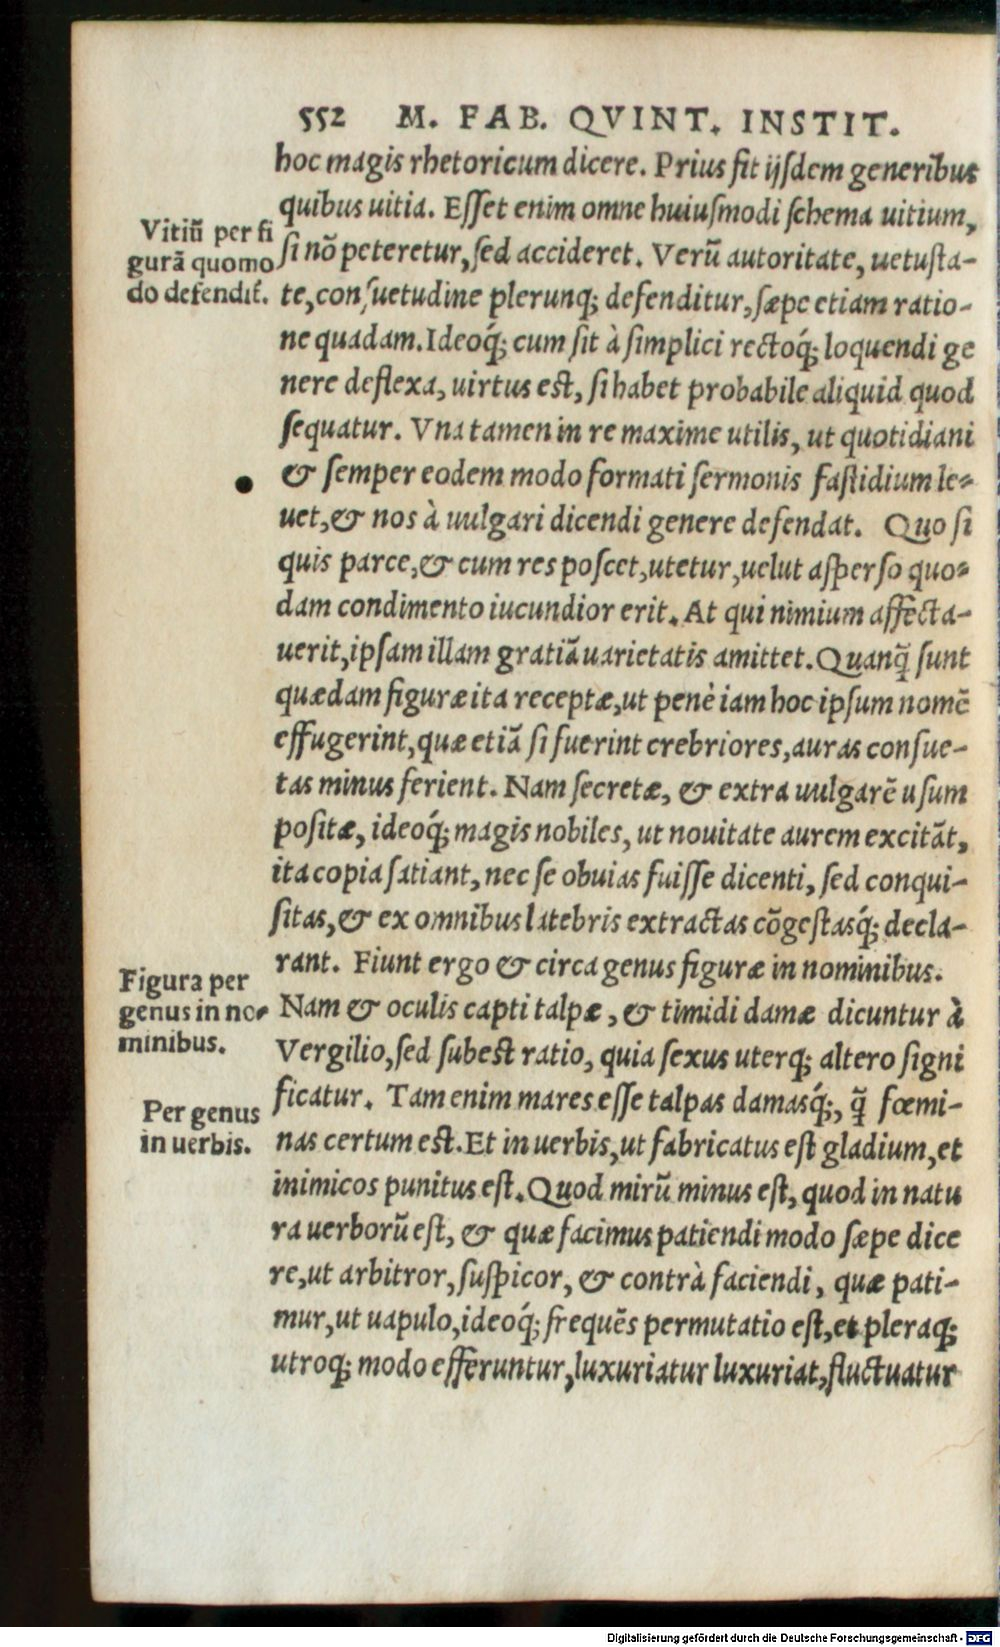 552 M. FAB. QVINT. INSTIT.
hoc magis rhetoricum dicere. Prius fit ijsdem generibus
quibus uitia. Esset enim omne huiusmodi schema uitium,
Vitiũ per fi
gurã quomo
do defendit̃.
si nõ peteretur, sed accideret. Verũ autoritate, uetusta-
te, consuetudine plerunq; defenditur, sæpe etiam ratio-
ne quadam. Ideoq́; cum sit à simplici rectoq́; loquendi ge
nere deflexa, uirtus est, si habet probabile aliquid quod
sequatur. Vna tamen in re maxime utilis, ut quotidiani
& semper eodem modo formati sermonis fastidium le-
uet, & nos à uulgari dicendi genere defendat. Quo si
quis parce, & cum res poscet, utetur, uelut asperso quo-
dam condimento iucundior erit. At qui nimium affecta-
uerit, ipsam illam gratiã uarietatis amittet. Quanq̃ sunt
quædam figuræ ita receptæ, ut penè iam hoc ipsum nomẽ
effugerint, quæ etiã si fuerint crebriores, auras consue-
tas minus ferient. Nam secretæ, & extra uulgarẽ usum
positæ, ideoq́; magis nobiles, ut nouitate aurem excitãt,
ita copia satiant, nec se obuias fuisse dicenti, sed conqui-
sitas, & ex omnibus latebris extractas cõgestasq́; decla-
rant. Fiunt ergo & circa genus figuræ in nominibus.
Figura per
genus in no-
minibus.
Nam & oculis capti talpæ, & timidi damæ dicuntur à
Vergilio, sed subest ratio, quia sexus uterq; altero signi
ficatur. Tam enim mares esse talpas damasq́;, q̃ fœmi-
Per genus
in uerbis.
nas certum est. Et in uerbis, ut fabricatus est gladium, et
inimicos punitus est. Quod mirũ minus est, quod in natu
ra uerborũ est, & quæ facimus patiendi modo sæpe dice
re, ut arbitror, suspicor, & contrà faciendi, quæ pati-
mur, ut uapulo, ideoq́; frequẽs permutatio est, et pleraq;
utroq; modo efferuntur, luxuriatur luxuriat, fluctuatur
Digitalisierung gefördert durch die Deutsche Forschungsgemeinschaft - DFG